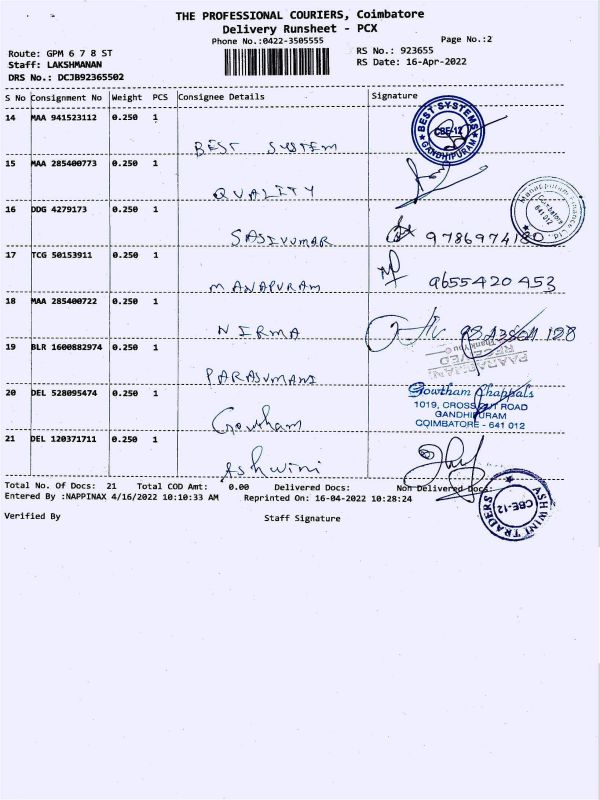 THE PROFESSIONAL COURIERS, Coimbatore
Delivery Runsheet - PCX
Phone No.:0422-3505555
Page No.:2
Route: GPM 6 7 8 ST
RS No.: 923655
Staff: LAKSHMANAN
RS Date: 16-Apr-2022
DRS No.: DCJB92365502
S No Consignment No Weight PCS Consignee Details Signature
14 MAA 941523112 0.250 1
BEST SYSTEM
BEST SYSTEMS CBE-12 GANDHIPURAM
15 MAA 285400773 0.250 1
QUALITY
16 DDG 4279173 0.250 1
SASIVUMAR 9786974180
Manappuram Finance Ltd. Coimbatore 641 012
17 TCG 50153911 0.250 1
MANAPURAM 9655420453
18 MAA 285400722 0.250 1
NIRMA
19 BLR 1600882974 0.250 1
RECEIVED
Thank You
PARASUMANI
20 DEL 528095474 0.250 1
Gowtham
Gowtham Chappals
1019, CROSS CUT ROAD
GANDHIPURAM
COIMBATORE - 641 012
21 DEL 120371711 0.250 1
Ashwini
ASHWINI TRADERS CBE-12
Total No. Of Docs: 21 Total COD Amt: 0.00 Delivered Docs: Non Delivered Docs:
Entered By :NAPPINAX 4/16/2022 10:10:33 AM Reprinted On: 16-04-2022 10:28:24
Verified By Staff Signature